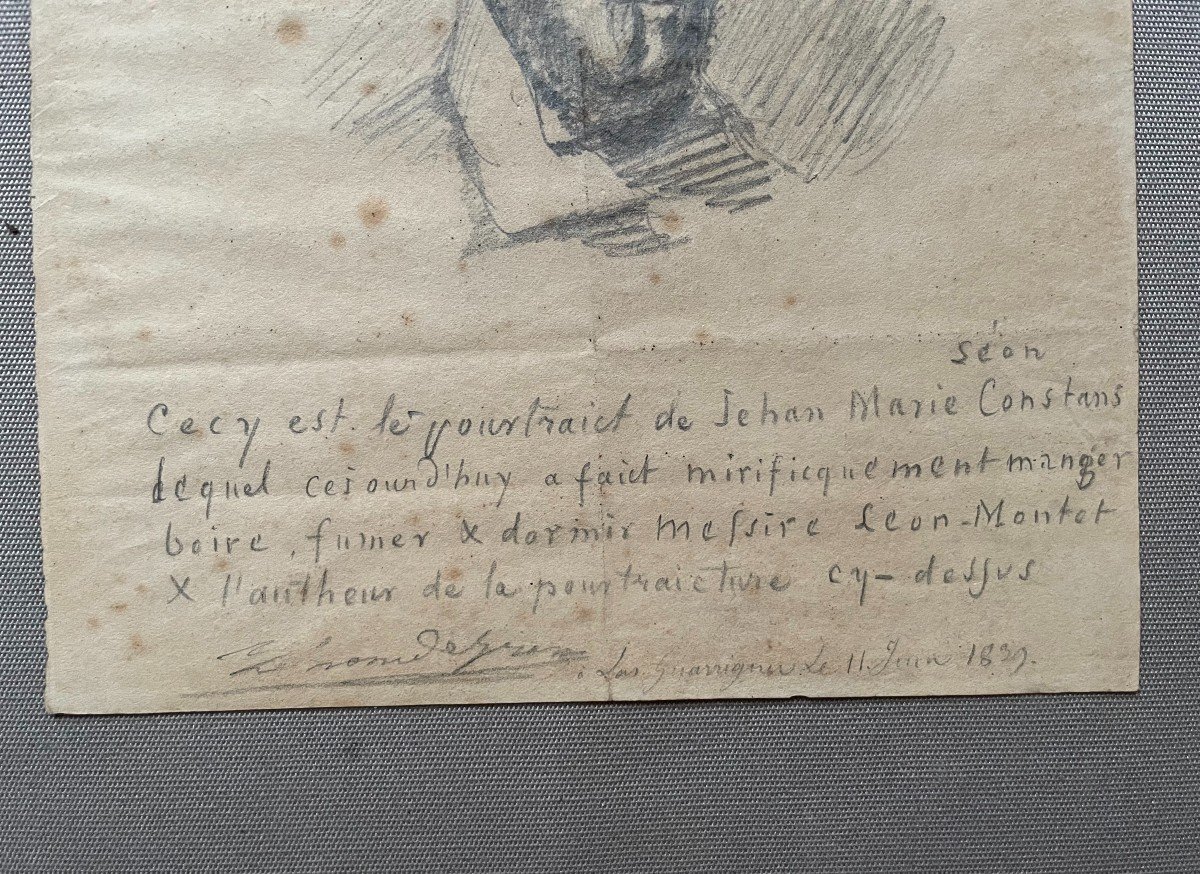 séon
Cecy est le pourtraict de Jehan Marie Constans
lequel cejourd'huy a faict mirificquement manger
boire, fumer & dormir Messire Leon-Montet
& l'autheur de la pourtraicture cy-dessus
Le 11 Juin